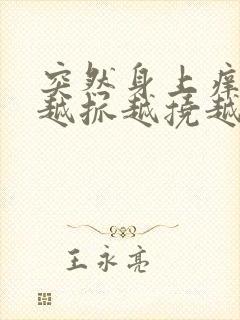 突然身上痒
越抓越挠越
王永亮